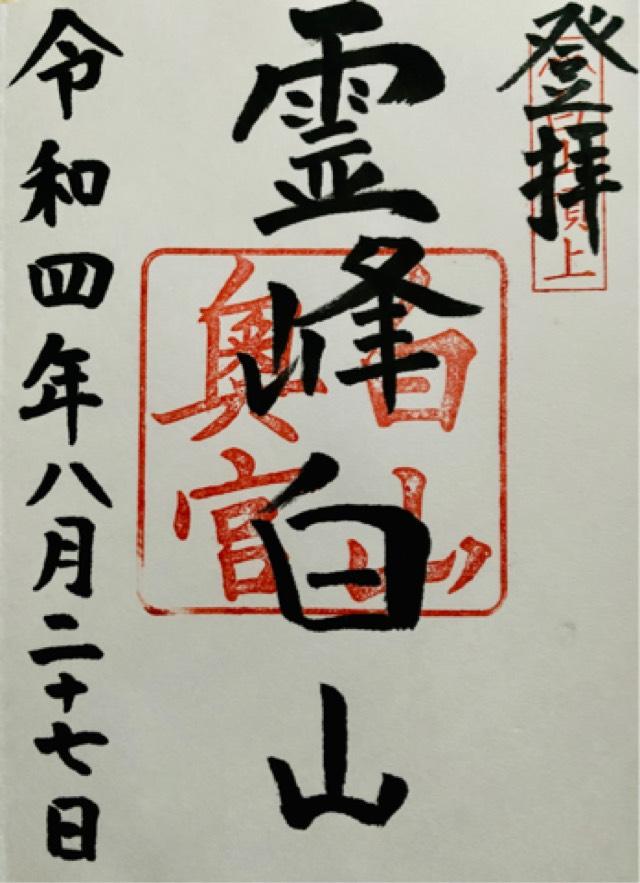 登拝
白山頂上
霊峰白山
白山
奥宮
令和四年八月二十七日